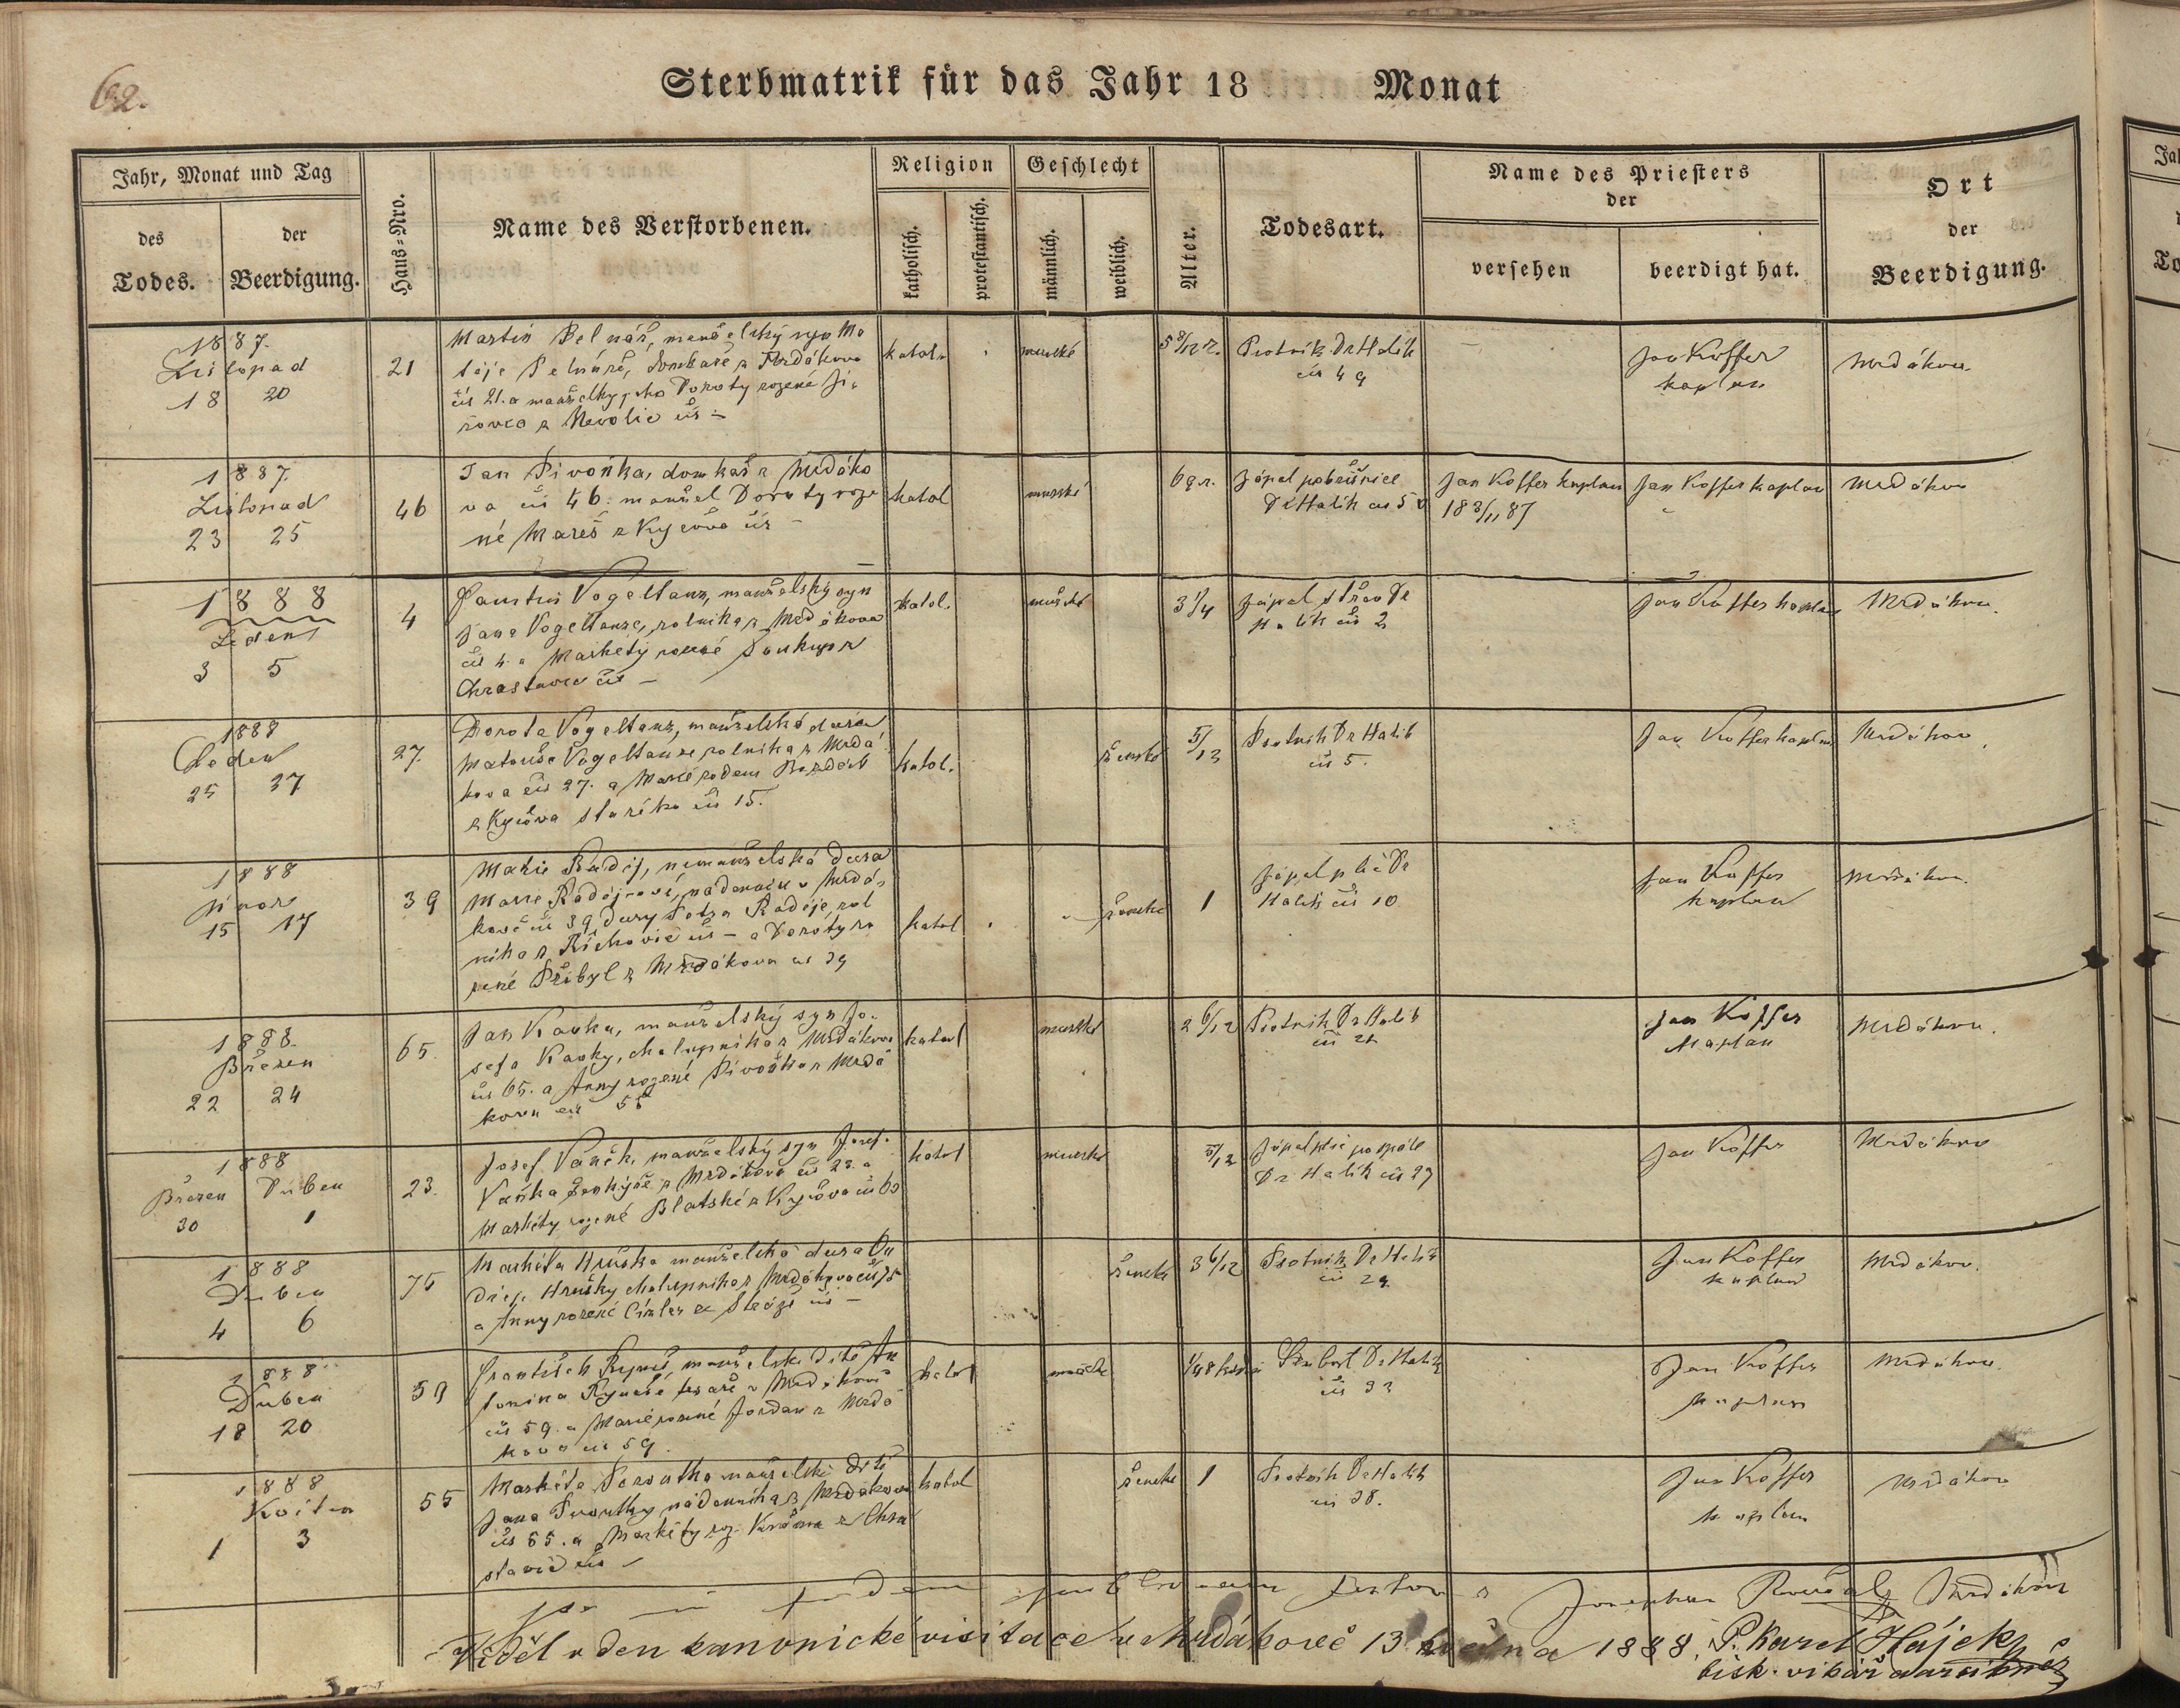 62.
Sterbmatrik für das Jahr 18 Monat
Jahr, Monat und Tag
des Todes.
der Beerdigung.
Haus=Nro.
Name des Verstorbenen.
Religion
katholisch.
protestantisch.
Geschlecht
männlich.
weiblich.
Alter.
Todesart.
Name des Priesters
der
versehen
beerdigt hat.
Ort
der
Beerdigung.
1887.
Listopad
18 20
21
Martin Pelnář, manželský syn Ma
těje Pelnáře, domkaře z Mrdákova
čís 21. a manželky jeho Doroty rozené Ji-
z Nevolic čís –
katol.
mužské
5 8/12 r.
Psotník Dr Halík
čís 49
Jan Koffer
kaplan
Mrdákov
1887.
Listopad
23 25
46
Jan Pivoňka, domkař z Mrdáko
va čís 46. manžel Doroty roze
né Mareš z Kyčova čís –
katol
mužské
69 r.
zápal pobřišnice
Dr Halík čís 50
Jan Koffer kaplan
18 3/11 87
Jan Koffer kaplan
Mrdákov
1888
Leden
3 5
4
Faustin Vogeltanz, manželský syn
Jana Vogeltanze, rolníka z Mrdákova
čís 4. a Markéty rozené Soukup z
Chrastavic čís –
katol.
mužské
3 1/4
zápal střev Dr
Halík čís 2
Jan Koffer kaplan
Mrdákov.
1888
Leden
25 27
27.
Dorota Vogeltanz, manželská dcera
Matouše Vogeltanze rolníka z Mrdá
kova čís 27. a Marie rodem
z Kyčova starého čís 15.
katol.
ženské
5/12
Psotník Dr Halík
čís 5.
Jan Koffer kaplan
Mrdákov
1888
únor
15 17
39
Marie Raděj, nemanželská dcera
Marie Radějové, nádenice v Mrdá-
kově čís 39 dcery Petra Raděje, rol
níka z čís – a Doroty ro
zené Přibyl z Mrdákova čís 39
katol
ženské
1
Zápal plic Dr
Halík čís 10
Jan Koffer
kaplan
Mrdákov.
1888.
Březen
22 24
65.
Jan Kavka, manželský syn Jo-
sefa Kavky, chalupníka z Mrdákova
čís 65. a Anny rozené Pivoňka z Mrdá
kova čís 58
katol
mužské
2 6/12
Psotník Dr Halík
čís 21
Jan Koffer
kaplan
Mrdákov.
1888
Březen Duben
30 1
23.
Josef Vaněk, manželský syn Josef.
Vaňka z Mrdákova čís 23. a
Markéty rozené Blatské z Kyčova čís 60
katol
mužské
5/12
Zápal plic
Dr Halík čís 27
Jan Koffer
Mrdákov
1888
Duben
4 6
75
Markéta Hruška manželská dcera On
dřeje Hrušky chalupníka z Mrdákova čís 75
a Anny rozené ze Stráže čís –
ženské
3 6/12
Psotník Dr Halík
čís 29.
Jan Koffer
kaplan
Mrdákov.
1888
Duben
18 20
59
František Rymeš, manželské dítě An
tonína Rymeše tesaře v Mrdákově
čís 59. a Marie rozené Jordan z Mrdá
kova čís 59.
katol
mužské
Dr Halík
čís 32
Jan Koffer
kaplan
Mrdákov.
1888
Květen
1 3
55
Markéta manželské dítě
Jana nádenníka z Mrdákova
čís 55. a Markéty roz. z Chra
stavic čís –
katol
ženské
1
Psotník Dr Halík
čís 38.
Jan Koffer
kaplan
Mrdákov
Josephus
Viděl v den kanonické visitace v Mrdákově 13. května 1888. P. Karel Hájek,
bisk. vikář